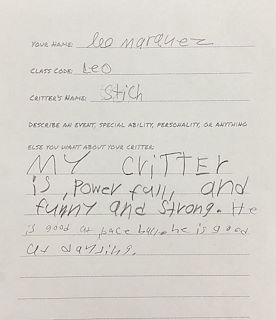 YOUR NAME: leo marquez
CLASS CODE: LEO
CRITTER'S NAME: Stich
DESCRIBE AN EVENT, SPECIAL ABILITY, PERSONALITY, OR ANYTHING
ELSE YOU WANT ABOUT YOUR CRITTER:
MY CriTTER
is, Power full, and
funny and strong. He
is good at he is good
at